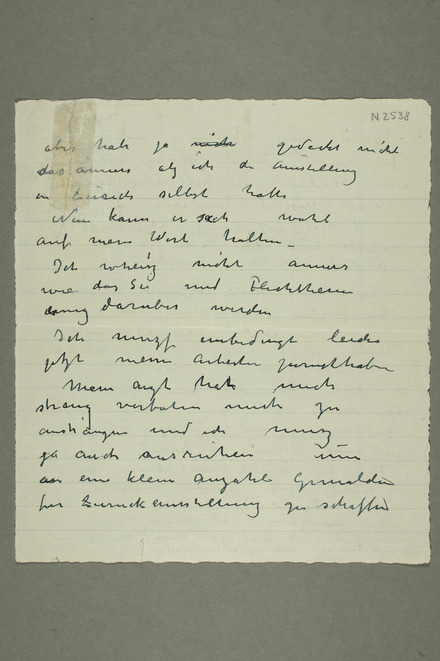 N2538
aber hab ja nich gedacht nicht
das anners als ich die Ausstellung
in Zürich selbst hatte
Nun kann er sich wohl
auf mein Wort halten –
Ich weiss nicht anners
wie das Sie und Flechtheim
einig darüber werden
Ich muss unbedingt leider
jetzt meine Arbeiten zurückhaben
Mein arzt hat mich
streng verboten mich zu
anstrengen und ich muss
ja auch ausruhen um
an eine klein anzahl Gemälde
für Zurickausstellung zu schaffen